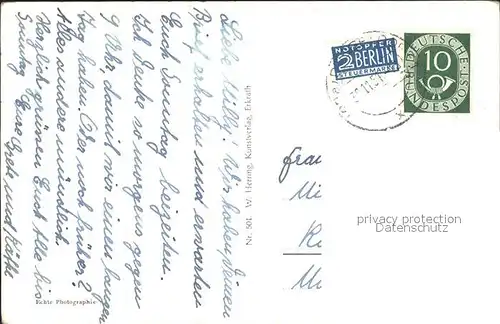 Liebe Milly! Wir haben Deinen
Brief erhalten und erwarten
Euch Sonntag beizeiten.
Ich denke so morgens gegen
9 Uhr, damit wir einen langen
Tag haben. Oder noch früher?
Alles andere mündlich.
Herzlich grüssen Euch Alle bis
Sonntag Eure Grete und Käthe
Echte Photographie
Nr. 501 W. Herring, Kunstverlag, Erkrath
NOTOPFER
2 BERLIN
STEUERMARKE
DEUTSCHE
BUNDESPOST
10
Frau
privacy protection
www.ansichtskartenversand.com